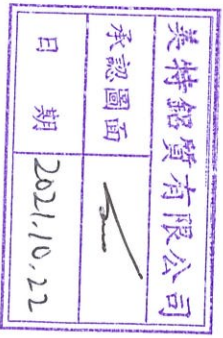 美特鋁質有限公司
承認圖面
日期 2021.10.22